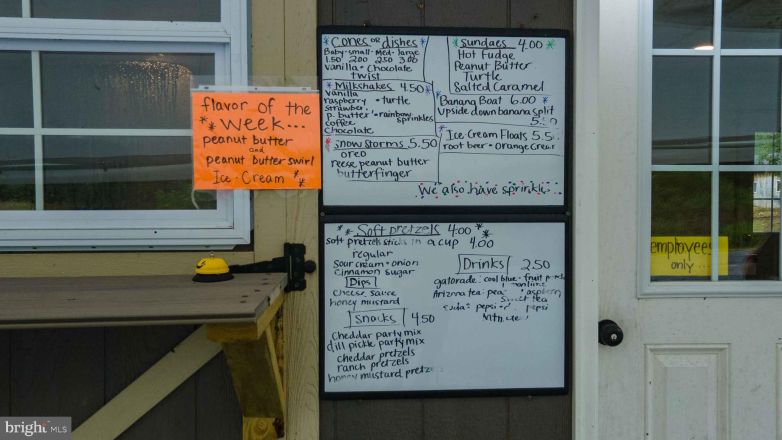 flavor of the
week...
peanut butter
and
peanut butter swirl
Ice-Cream
Cones or dishes
Baby-small-Med-large
1.50 2.00 2.50 3.00
Vanilla Chocolate
twist
Milkshakes 4.50
vanilla
raspberry turtle
p. butter rainbow
coffee sprinkles
chocolate
snow storms 5.50
oreo
reese peanut butter
butterfinger
Sundaes 4.00
Hot Fudge
Peanut Butter
Turtle
Salted Caramel
Banana Boat 6.00
upside down banana split
Ice-Cream Floats
root beer
we also have
Soft pretzels 4.00
soft pretzels sticks in a cup 4.00
regular
sour cream + onion
cinnamon sugar
Dips
cheese sauce
honey mustard
Snacks 4.50
Cheddar party mix
dill pickle party mix
cheddar pretzels
ranch pretzels
honey mustard
Drinks 2.50
gatorade: cool blue - fruit
Arizona tea:
sweet tea
pepsi
employees
only...
bright MLS